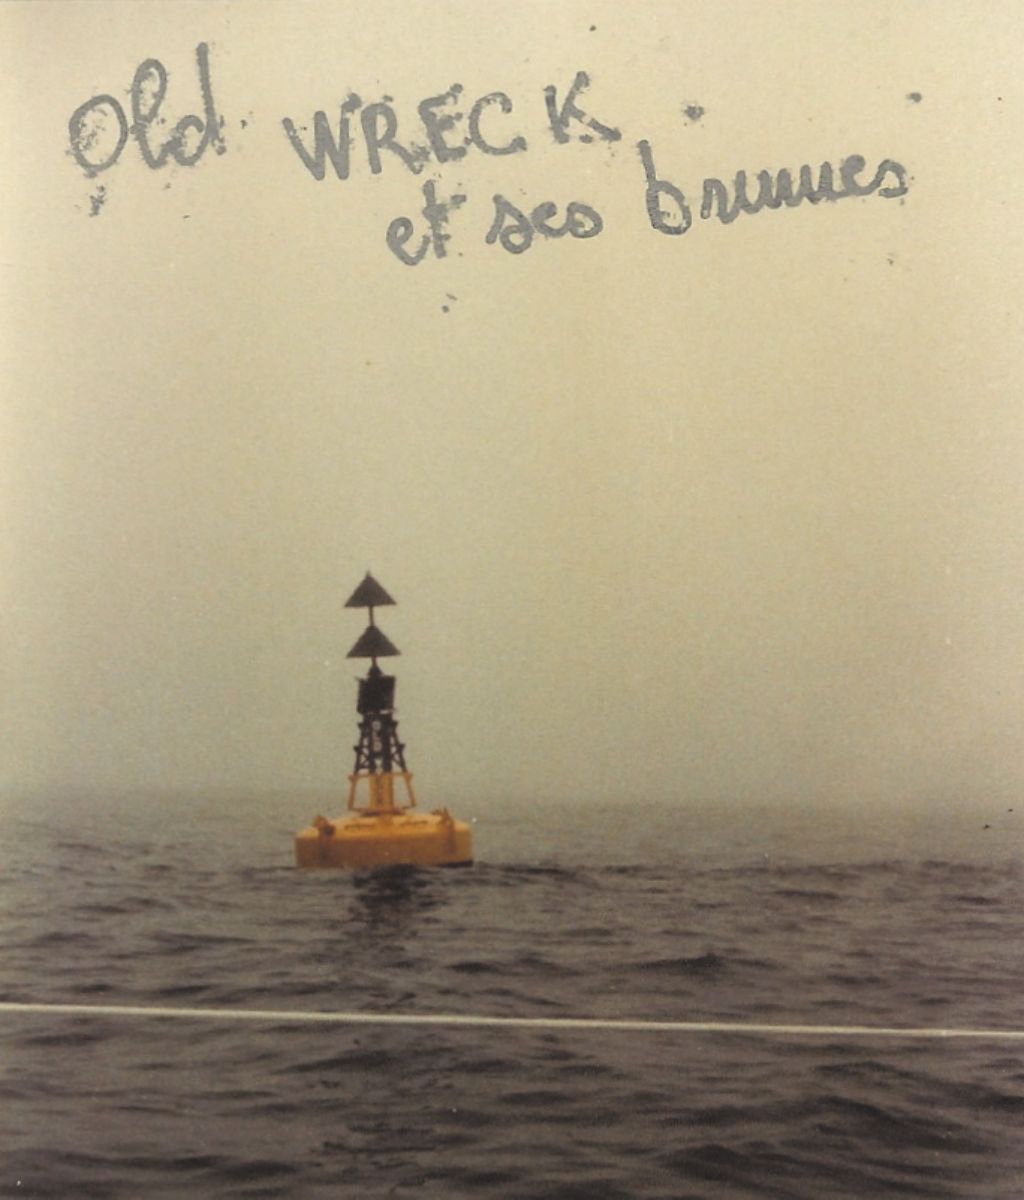 Old WRECK
et ses brumes